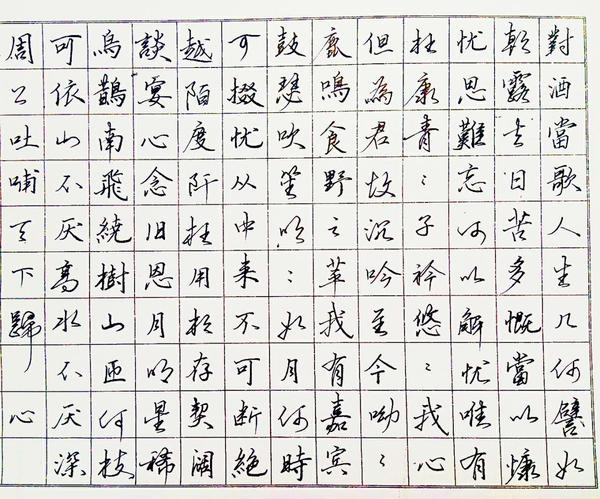 對酒當歌人生几何譬如
朝露去日苦多慨當以慷
忧思難忘何以解忧唯有
杜康青〻子衿悠〻我心
但為君故沉吟至今呦〻
鹿鳴食野之苹我有嘉宾
鼓瑟吹笙明〻如月何時
可掇忧从中来不可断絕
越陌度阡枉用相存契阔
談宴心念旧恩月明星稀
烏鵲南飛繞樹三匝何枝
可依山不厌高水不厌深
周公吐哺天下歸心